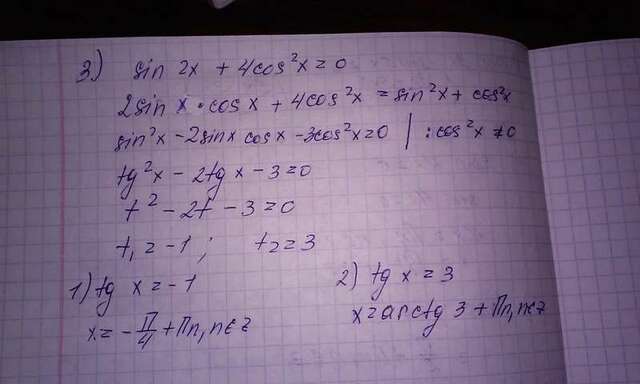 3) sin 2x + 4cos²x = 0
2sin x · cos x + 4cos²x = sin²x + cos²x
sin²x - 2sinx cosx - 3cos²x = 0 | : cos²x ≠ 0
tg²x - 2tg x - 3 = 0
t² - 2t - 3 = 0
t₁ = -1 ; t₂ = 3
1) tg x = -1
2) tg x = 3
x = -π/4 + πn, n∈z
x = arctg 3 + πn, n∈z